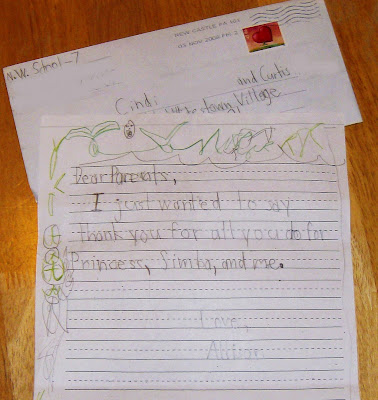 NEW CASTLE PA 161
03 NOV 2008 PM 2
N.W. School-7
Cindi and Curtis
Village
Dear Parents,
I just wanted to say
thank you for all you do for
Princess, Simba, and me.
Love,